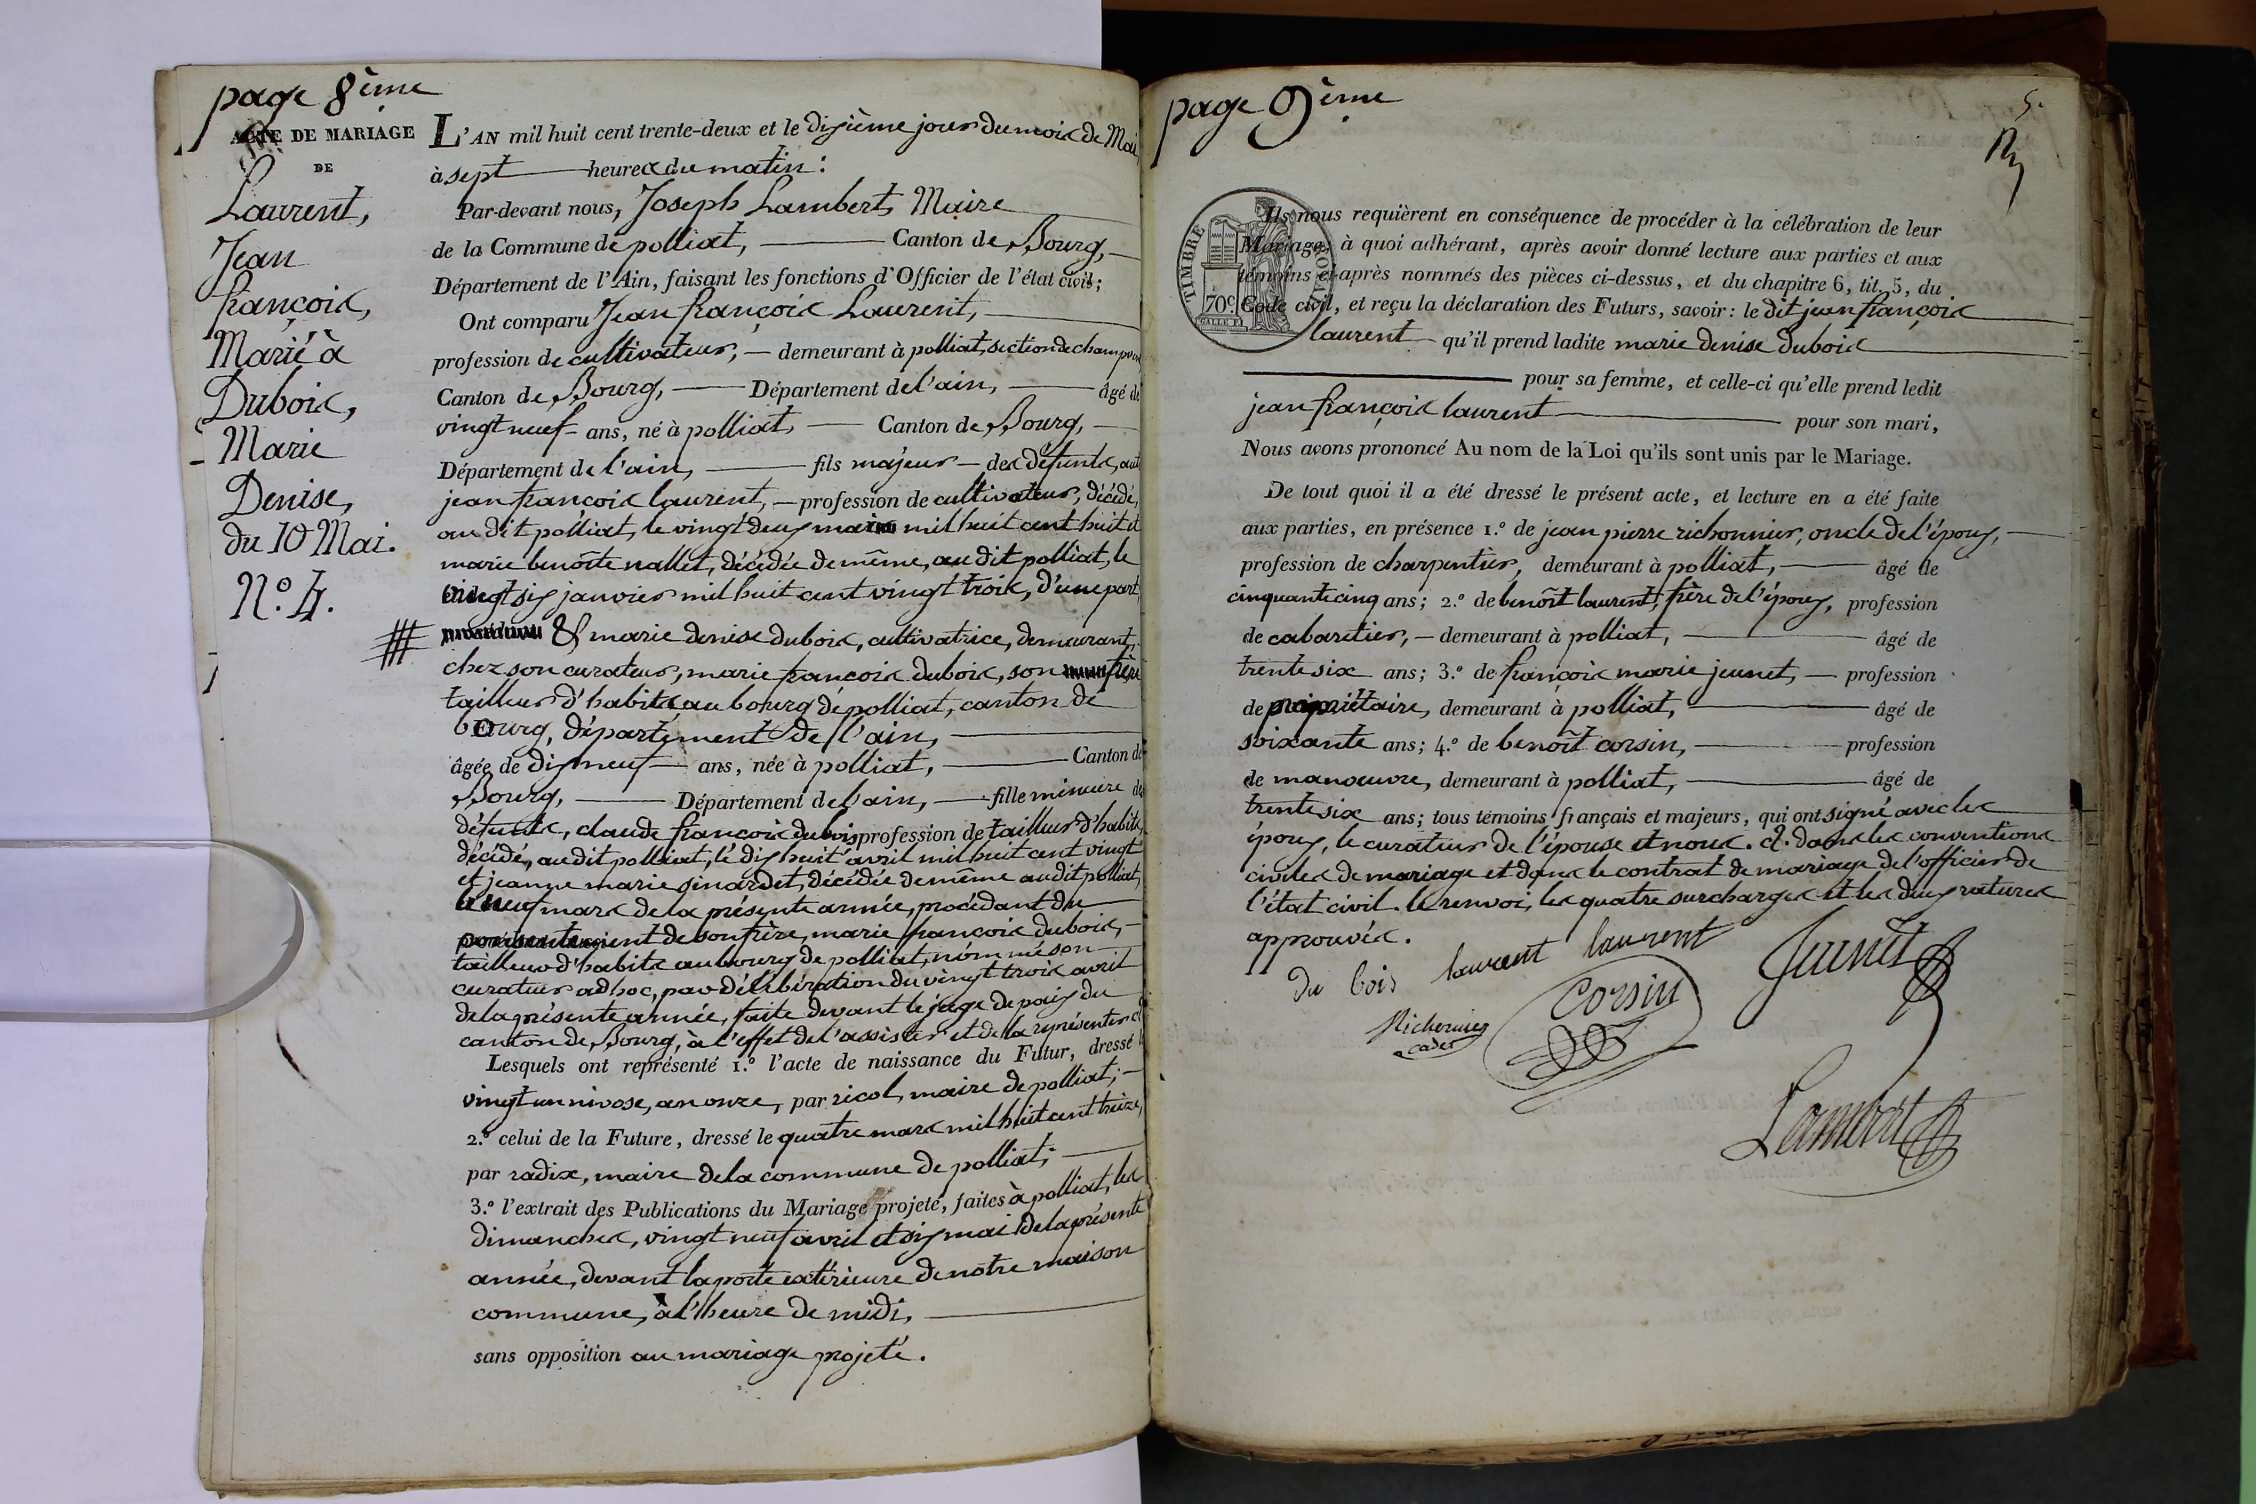 page 8ème
ACTE DE MARIAGE
DE
Laurent,
Jean
françois,
Marié à
Dubois,
Marie
Denise,
du 10 Mai.
N.º 4.
L'AN mil huit cent trente-deux et le dixième jour du mois de Mai,
à sept heures du matin:
Par-devant nous, Joseph Lambert, Maire
de la Commune de polliat, Canton de Bourg,
Département de l'Ain, faisant les fonctions d'Officier de l'état civil;
Ont comparu Jean françois Laurent,
profession de cultivateur, demeurant à polliat, section de
Canton de Bourg, Département de l'ain, âgé de
vingt neuf ans, né à polliat, Canton de Bourg,
Département de l'ain, fils majeur des défunts,
jean françois laurent, profession de cultivateur, décédé,
au dit polliat, le vingt deux mil huit cent huit et
marie benoîte nallet, décédée de même, au dit polliat, le
vingt six janvier mil huit cent vingt trois, d'une part,
& marie denise dubois, cultivatrice, demeurant,
chez son curateur, marie françois dubois, son frère
tailleur d'habits au bourg de polliat, canton de
bourg, département de l'ain,
âgée de dix neuf ans, née à polliat, Canton de
Bourg, Département de l'ain, fille mineure de
défunts, claude françois dubois profession de tailleur d'habits,
décédé, au dit polliat, le dix huit avril mil huit cent vingt
et jeanne marie sinardet, décédée de même au dit polliat,
le neuf mars de la présente année, procédant du
consentement de son frère, marie françois dubois,
tailleur d'habits au bourg de polliat, nommé son
curateur ad hoc, par délibération du vingt trois avril
de la présente année, faite devant le juge de paix du
canton de Bourg, à l'effet de l'assister et de la représenter
Lesquels ont représenté 1.º l'acte de naissance du Futur, dressé le
vingt un nivose, an onze, par ricol, maire de polliat;
2.º celui de la Future, dressé le quatre mars mil huit cent treize,
par radix, maire de la commune de polliat;
3.º l'extrait des Publications du Mariage projeté, faites à polliat, les
dimanches, vingt neuf avril et six mai de la présente
année, devant la porte extérieure de notre maison
commune, à l'heure de midi,
sans opposition au mariage projeté.
page 9ème
5.
TIMBRE ROYAL
70c.
Ils nous requièrent en conséquence de procéder à la célébration de leur
Mariage, à quoi adhérant, après avoir donné lecture aux parties et aux
témoins ci-après nommés des pièces ci-dessus, et du chapitre 6, tit. 5, du
Code civil, et reçu la déclaration des Futurs, savoir: le dit jean françois
laurent qu'il prend ladite marie denise dubois
pour sa femme, et celle-ci qu'elle prend ledit
jean françois laurent pour son mari,
Nous avons prononcé Au nom de la Loi qu'ils sont unis par le Mariage.
De tout quoi il a été dressé le présent acte, et lecture en a été faite
aux parties, en présence 1.º de jean pierre richonnier, oncle de l'époux,
profession de charpentier, demeurant à polliat, âgé de
cinquante cinq ans; 2.º de benoît laurent, frère de l'époux, profession
de cabaretier, demeurant à polliat, âgé de
trente six ans; 3.º de françois marie jeunet, profession
de propriétaire, demeurant à polliat, âgé de
soixante ans; 4.º de benoît corsin, profession
de manoeuvre, demeurant à polliat, âgé de
trente six ans; tous témoins français et majeurs, qui ont signé avec les
époux, le curateur de l'épouse et nous. &. dans les conventions
civiles de mariage et dans le contrat de mariage de l'officier de
l'état civil. le renvoi, les quatre surcharges et les deux ratures
approuvés.
du bois laurent laurent Jeunet
Corsin
cadet
Lambert